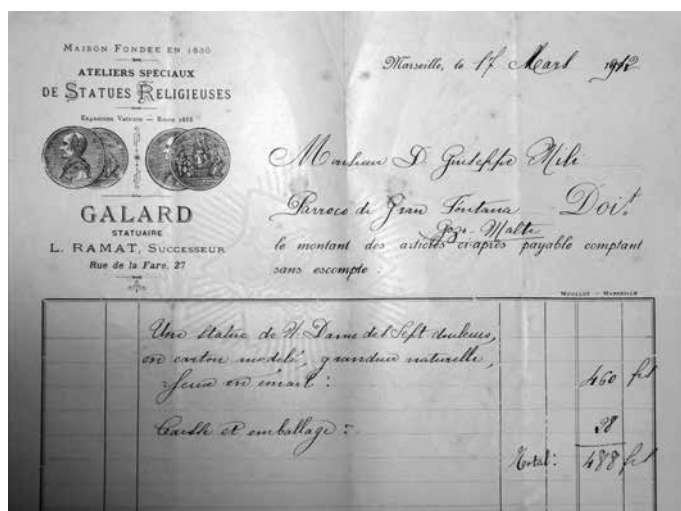 MAISON FONDÉE EN 1830
ATELIERS SPECIAUX
DE STATUES RELIGIEUSES
Exposition Vaticane — Rome 1888
GALARD
STATUAIRE
L. RAMAT, SUCCESSEUR
Rue de la Fare, 27
Marseille, le 17 Mars 1912
Monsieur D. Giuseppe
Parroco de Gran Fontana Doit
Gozo-Malte
le montant des articles ci-après payable comptant
sans escompte :
MOULLOT — MARSEILLE
Une statue de N. Dame des Sept douleurs,
en carton modelé, grandeur naturelle,
Yeux en émail : 460 frs
Caisse et emballage : 28
Total : 488 frs